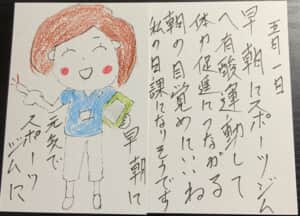 五月一日
早朝にスポーツジム
へ有酸運動して
体力促進につながる
朝の目覚めにいいね
私の日課になりそうです
早朝に
元気で
スポーツ
ジムに